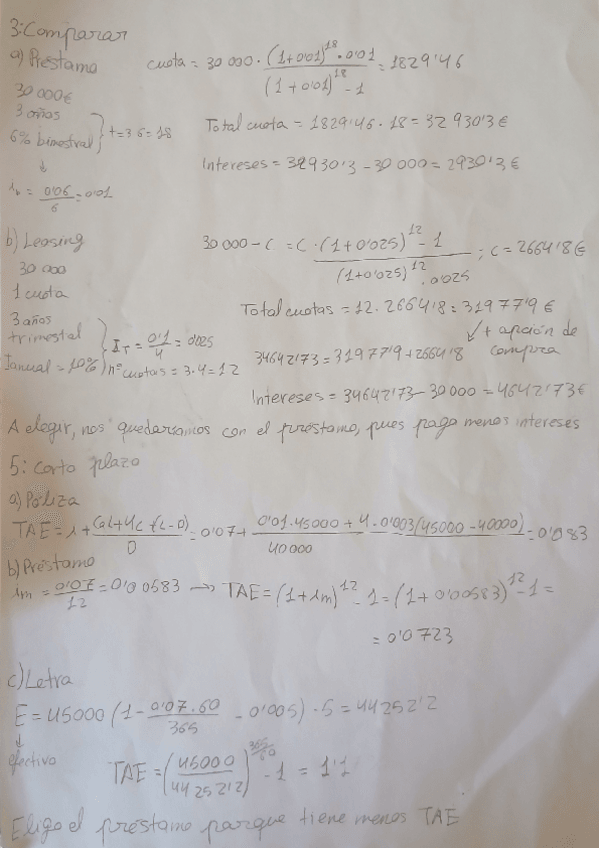 3: Comparar
a) Préstamo
30 000€
3 años
6% bimestral } t = 3·6 = 18
↓
i_b = 0'06/6 = 0'01
cuota = 30 000 · (1+0'01)^18 · 0'01 / (1+0'01)^18 - 1 = 1829'46
Total cuota = 1829'46 · 18 = 32 930'3€
Intereses = 32930'3 - 30 000 = 2930'3€
b) Leasing
30 000
1 cuota
3 años
trimestal
Ianual = 10% } I_T = 0'1/4 = 0'025
nº cuotas = 3·4 = 12
30 000 - C = C · (1+0'025)^12 - 1 / (1+0'025)^12 · 0'025 ; C = 2664'8€
Total cuotas = 12 · 2664'8 = 31977'9 €
↙ + opción de compra
34642'73 = 31977'9 + 2664'8
Intereses = 34642'73 - 30 000 = 4642'73€
A elegir, nos quedaríamos con el préstamo, pues pago menos intereses
5: Corto plazo
a) Póliza
TAE = i + (GL + 4c · (L-D)) / D = 0'07 + (0'01·45000 + 4·0'003(45000-40000)) / 40000 = 0'083
b) Préstamo
im = 0'07/12 = 0'00583 → TAE = (1+im)^12 - 1 = (1+0'00583)^12 - 1 =
= 0'0723
c) Letra
E = 45000 (1 - 0'07·60/365 - 0'005) · 5 = 44252'2
↓
efectivo
TAE = (45000/44252'2)^365/60 - 1 = 1'1
Eligo el préstamo porque tiene menos TAE